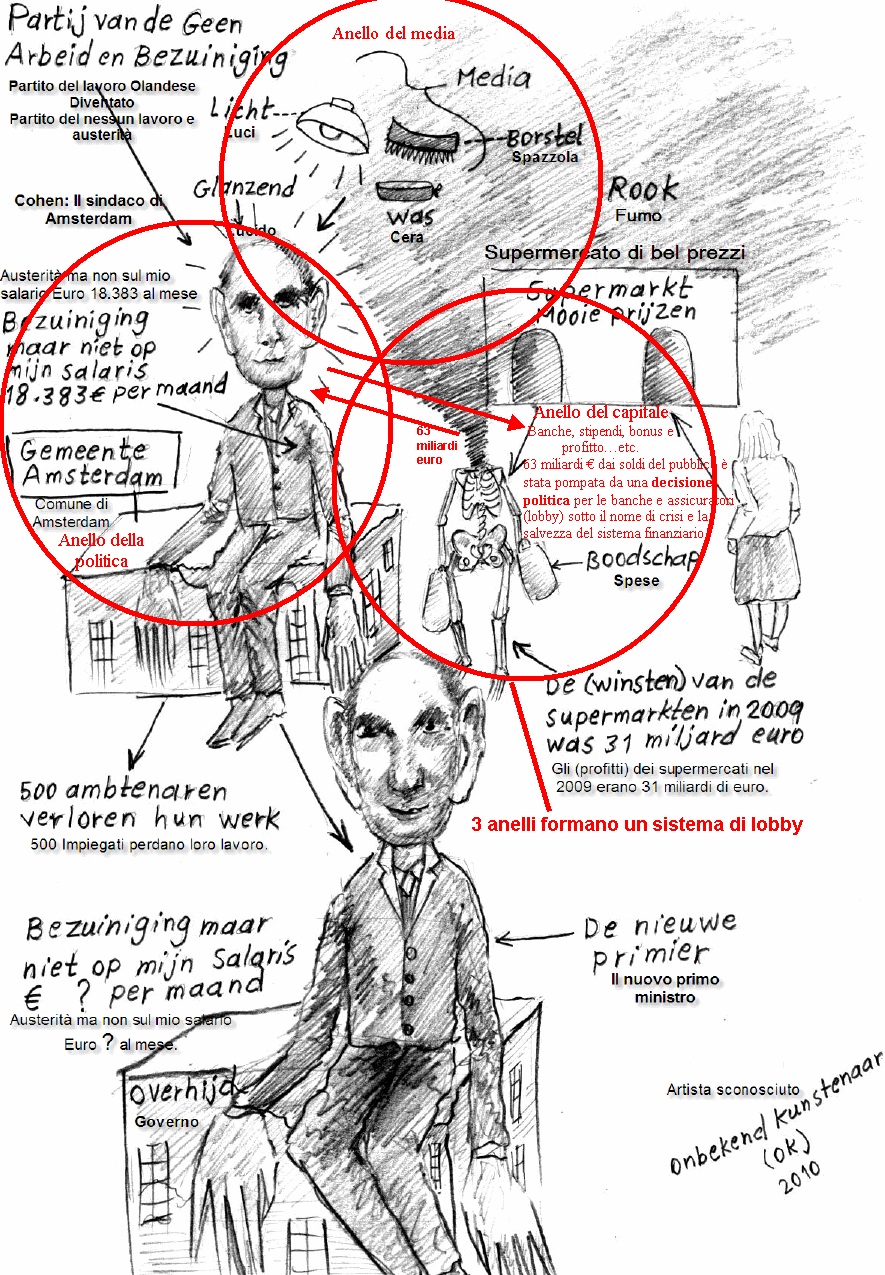 Partij van de Geen
Arbeid en Bezuiniging
Partito del lavoro Olandese
Diventato
Partito del nessun lavoro e
austerità
Anello del media
Media
Licht
Luci
Borstel
Spazzola
Glanzend
Lucido
Was
Cera
Rook
Fumo
Cohen: Il sindaco di
Amsterdam
Supermercato di bel prezzi
Supermarkt
Mooie prijzen
Austerità ma non sul mio
salario Euro 18.383 al mese
Bezuiniging
maar niet op
mijn salaris
18.383€ per maand
63
miliardi
euro
Anello del capitale
Banche, stipendi, bonus e
profitto…etc.
63 miliardi € dai soldi del pubblico è
stata pompata da una decisione
politica per le banche e assicuratori
(lobby) sotto il nome di crisi e la
salvezza del sistema finanziario
Gemeente
Amsterdam
Comune di
Amsterdam
Anello della
politica
Boodschap
Spese
De (winsten) van de
supermarkten in 2009
was 31 miljard euro
Gli (profitti) dei supermercati nel
2009 erano 31 miliardi di euro.
500 ambtenaren
verloren hun werk
500 Impiegati perdano loro lavoro.
3 anelli formano un sistema di lobby
Bezuiniging maar
niet op mijn Salaris
€ ? per maand
Austerità ma non sul mio salario
Euro ? al mese.
De nieuwe
primier
Il nuovo primo
ministro
Overhijd
Governo
Artista sconosciuto
Onbekend Kunstenaar
(OK)
2010